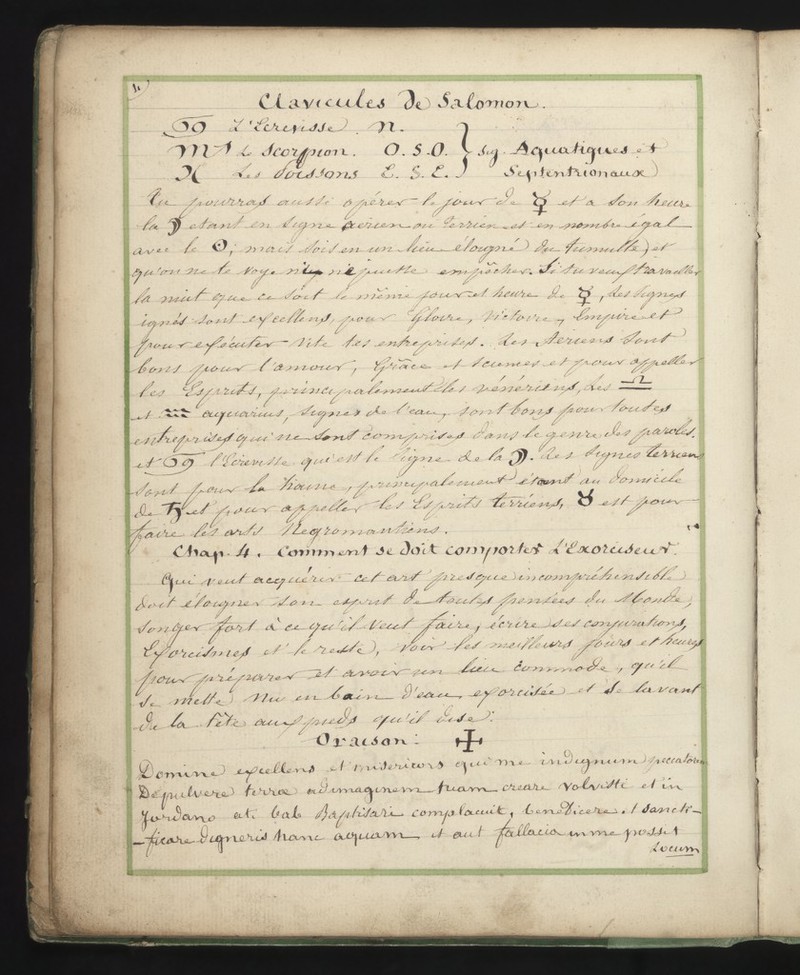 Clavicules de Salomon.
♋ L'Ecrevisse. N.
♏ Le Scorpion. O. S. O. } Sig. Aquatiques et
♓ Les Poissons E. S. E. } Septentrionaux
Tu pourras aussi opérer le jour de ☿ et a son heure
la ☽ etant en Signe aërien ou Terrien et en nombre égal
avec le ☉; mais sois en un lieu élougné du tumulte, et
qu'on ne te voye ny ne puisse empêcher. Si tu veux travailler
la nuit que ce soit le même jour et heure de ☿, Les Signes
ignés sont excellens, pour Gloire, Victoire, Empire et
pour exécuter vite tes entreprises. Les Aeriens Sont
bons pour l'amour, Grâce et Sciences et pour appeller
les Esprits, principalement les vénériens, Les ♎
et ♒ aquarius, signes de l'eau, sont bons pour toutes
entreprises qui ne sont comprises dans le genre des paroles.
et ♋ l'Ecrevisse qui est le Signe de la ☽. Les Signes terriens
Sont pour la haine, principalement étant au domicile
de ♄ et pour appeller les Esprits terriens, ♉ est pour
faire les arts Negromantiens.
Chap. 4. Comment se doit comporter L'Exorciseur.
Qui veut acquérir cet art presque incompréhensible
doit élougner son esprit de toutes pensées du Monde,
songer fort à ce qu'il veut faire, écrire ses conjurations,
Exorcismes et le reste, voir les meilleurs jours et heures
pour préparer et avoir un lieu commode, qu'il
se mette nu en bain d'eau exorcisée et se lavant
de la tête aux pieds qu'il dise:
Oraison: ✠
Domine excellens et misericors qui me indignum peccatorem
De pulvere terræ ad imaginem tuam creare volvisti et in
Jordano ate bab Baptisari complacuit, benedicere et sancti-
-ficare digneris hanc acquam et aut fallacia in me possit
Locum